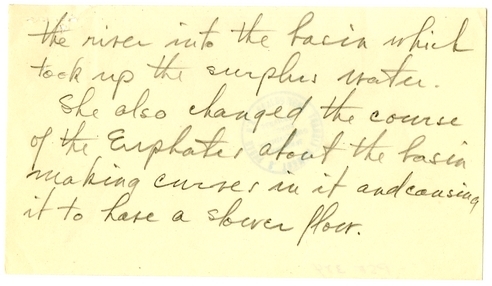 the river into the basin which
took up the surplus water.
She also changed the course
of the Euphates about the basin
making curves in it and causing
it to have a slower flow.